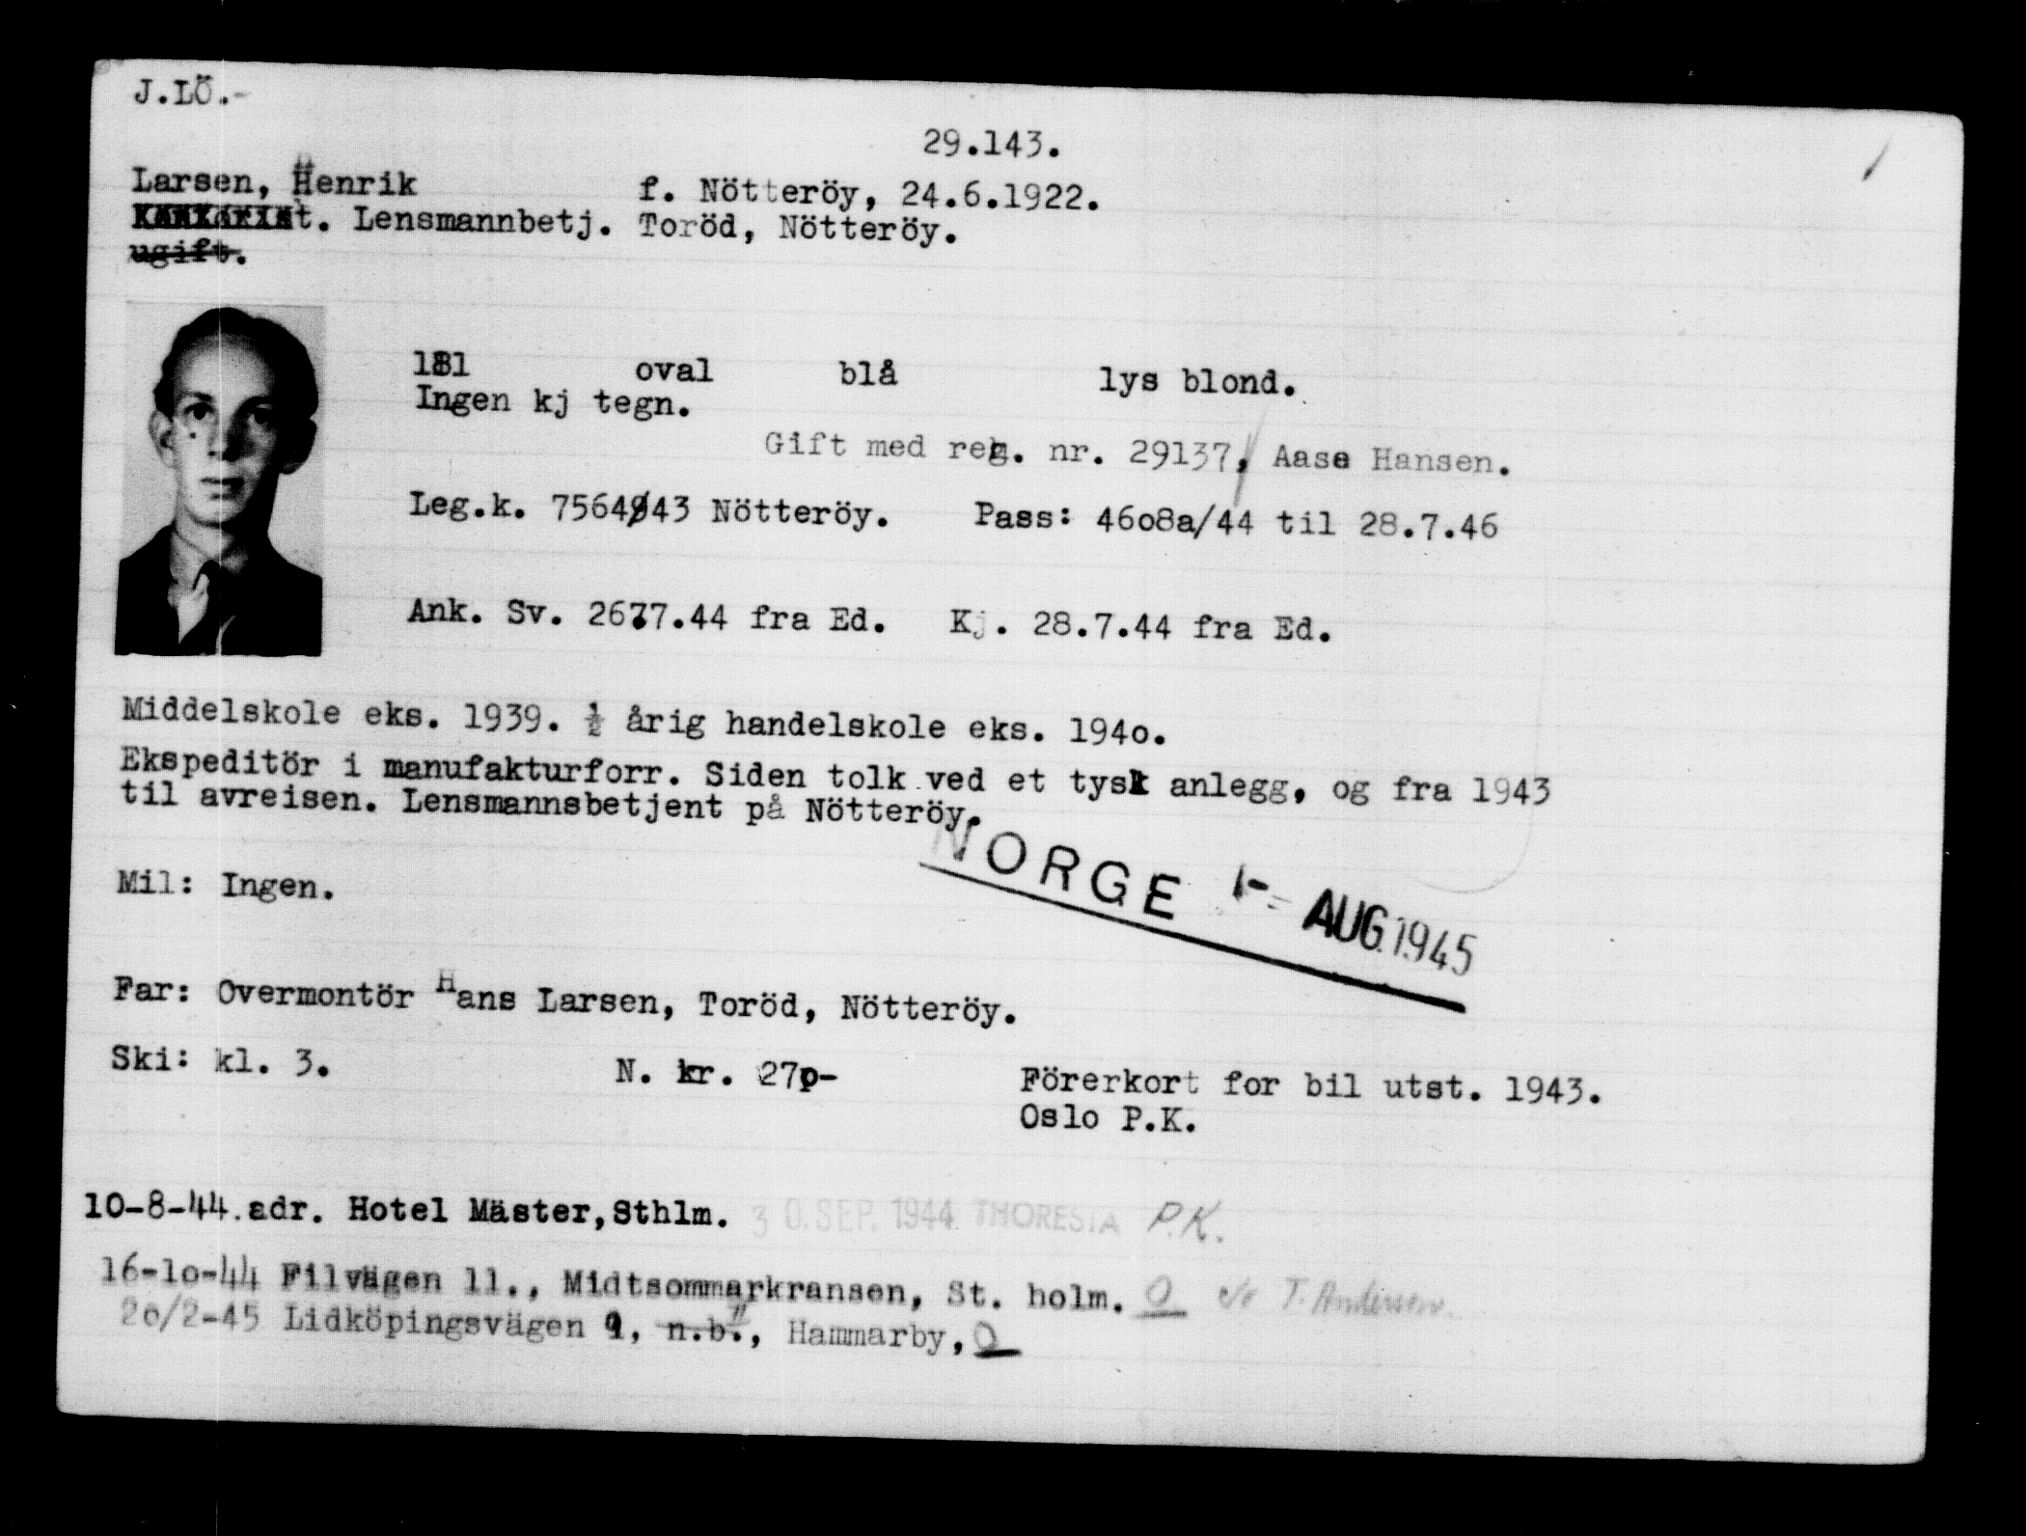 J.LÖ.-
29.143.
Larsen, Henrik f. Nötteröy, 24.6.1922.
t. Lensmannbetj. Toröd, Nötteröy.
ugift.
181 oval blå lys blond.
Ingen kj tegn.
Gift med reg. nr. 29137, Aase Hansen.
Leg.k. 7564/43 Nötteröy. Pass: 46o8a/44 til 28.7.46
Ank. Sv. 26.7.44 fra Ed. Kj. 28.7.44 fra Ed.
Middelskole eks. 1939. ½ årig handelskole eks. 194o.
Ekspeditör i manufakturforr. Siden tolk ved et tysk anlegg, og fra 1943
til avreisen. Lensmannsbetjent på Nötteröy.
NORGE 1- AUG.1945
Mil: Ingen.
Far: Overmontör Hans Larsen, Toröd, Nötteröy.
Ski: kl. 3. N. kr. 27o- Förerkort for bil utst. 1943.
Oslo P.K.
10-8-44.adr. Hotel Mäster,Sthlm. 30.SEP. 1944 THORESTA P.K.
16-1o-44 Filvägen 11., Midtsommarkransen, St. holm. O c/o T. Andersen.
2o/2-45 Lidköpingsvägen 9, n.b.", Hammarby, O